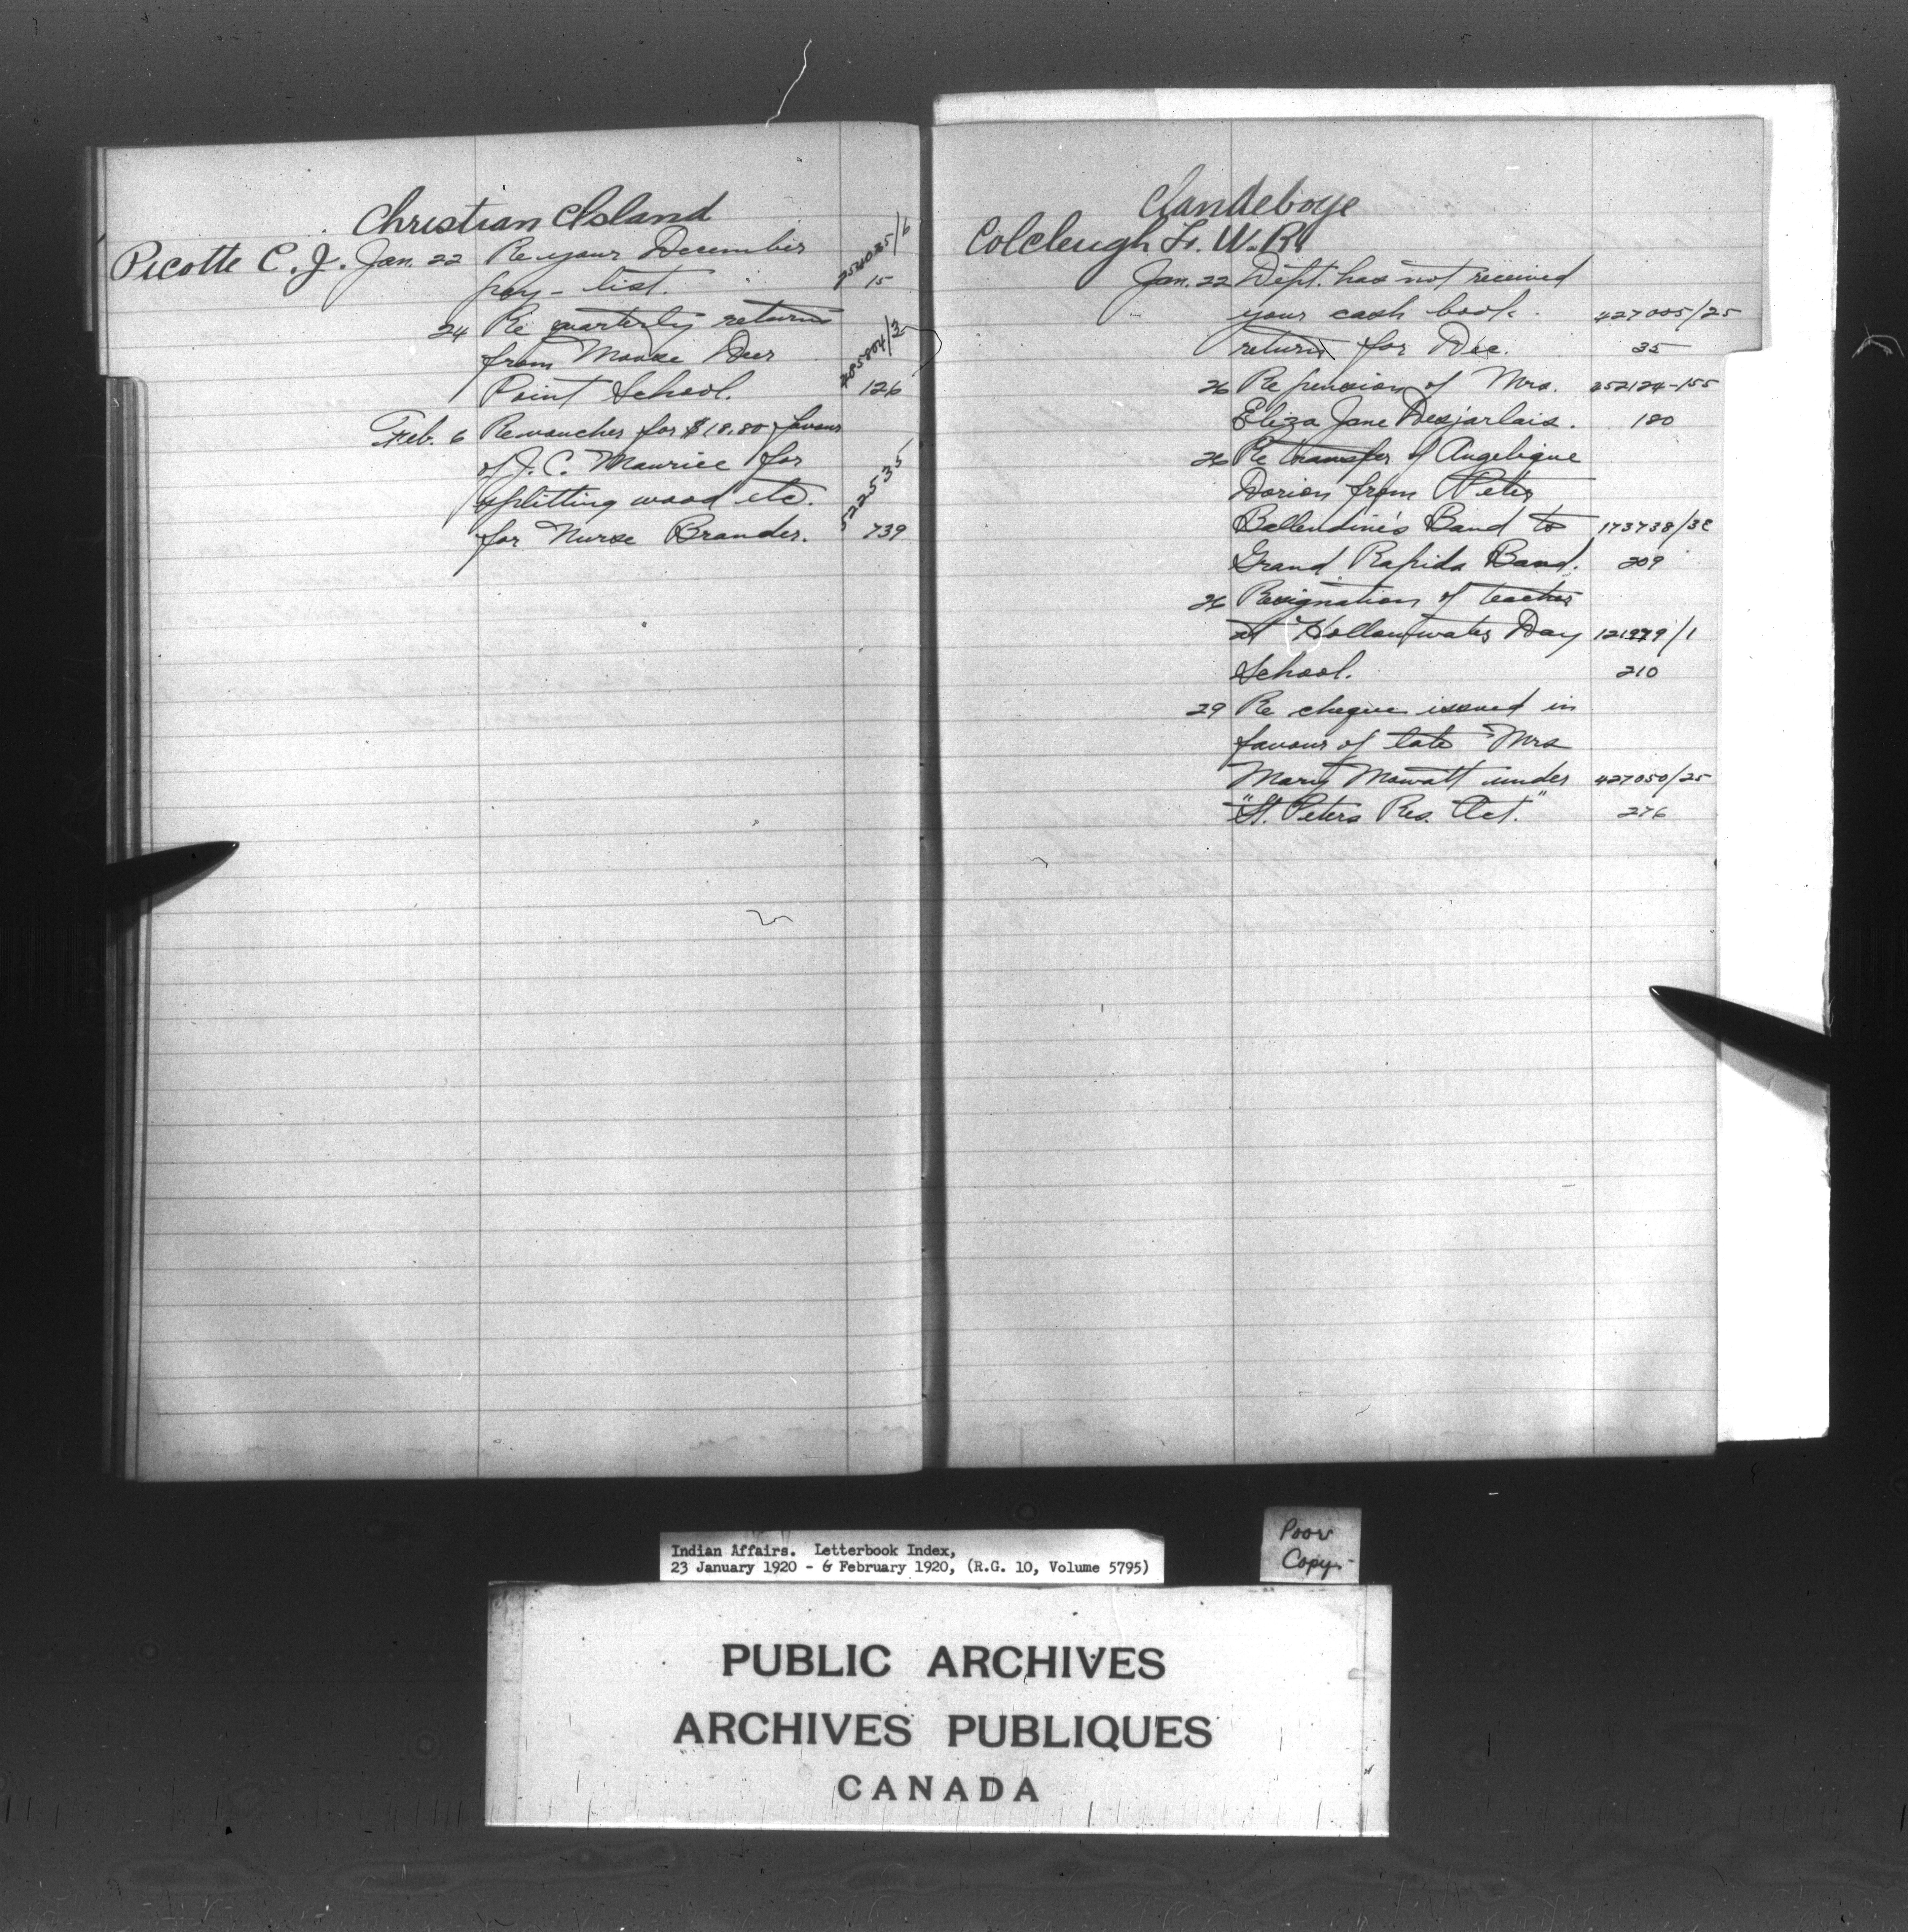 Christian Island
Picotte C. J. Jan. 22 Re your December
pay-list. 15
24 Re quarterly returns
from Moose Deer
Point School. 126
Feb. 6 Re voucher for $18.80 favour
of J. C. Maurice for
splitting wood etc. 522535
for Nurse Brander. 739
Clandeboye
Colcleugh Lt. W. R.
Jan. 22 Dept. has not received
your cash book 427005/25
returns for Dec. 35
26 Re pension of Mrs. 352124-155
Eliza Jane Desjarlais. 180
26 Re transfer of Angelique
Dorion from Peter
Ballendine's Band to 173738/3C
Grand Rapids Band. 209
26 Resignation of teacher
at Hollowwater Day 121979/1
School. 210
29 Re cheque issued in
favour of late Mrs
Mary Mowatt under 427050/25
"St. Peters Res. Act." 276
Indian Affairs. Letterbook Index,
23 January 1920 - 6 February 1920, (R.G. 10, Volume 5795)
Poor
Copy.
PUBLIC ARCHIVES
ARCHIVES PUBLIQUES
CANADA